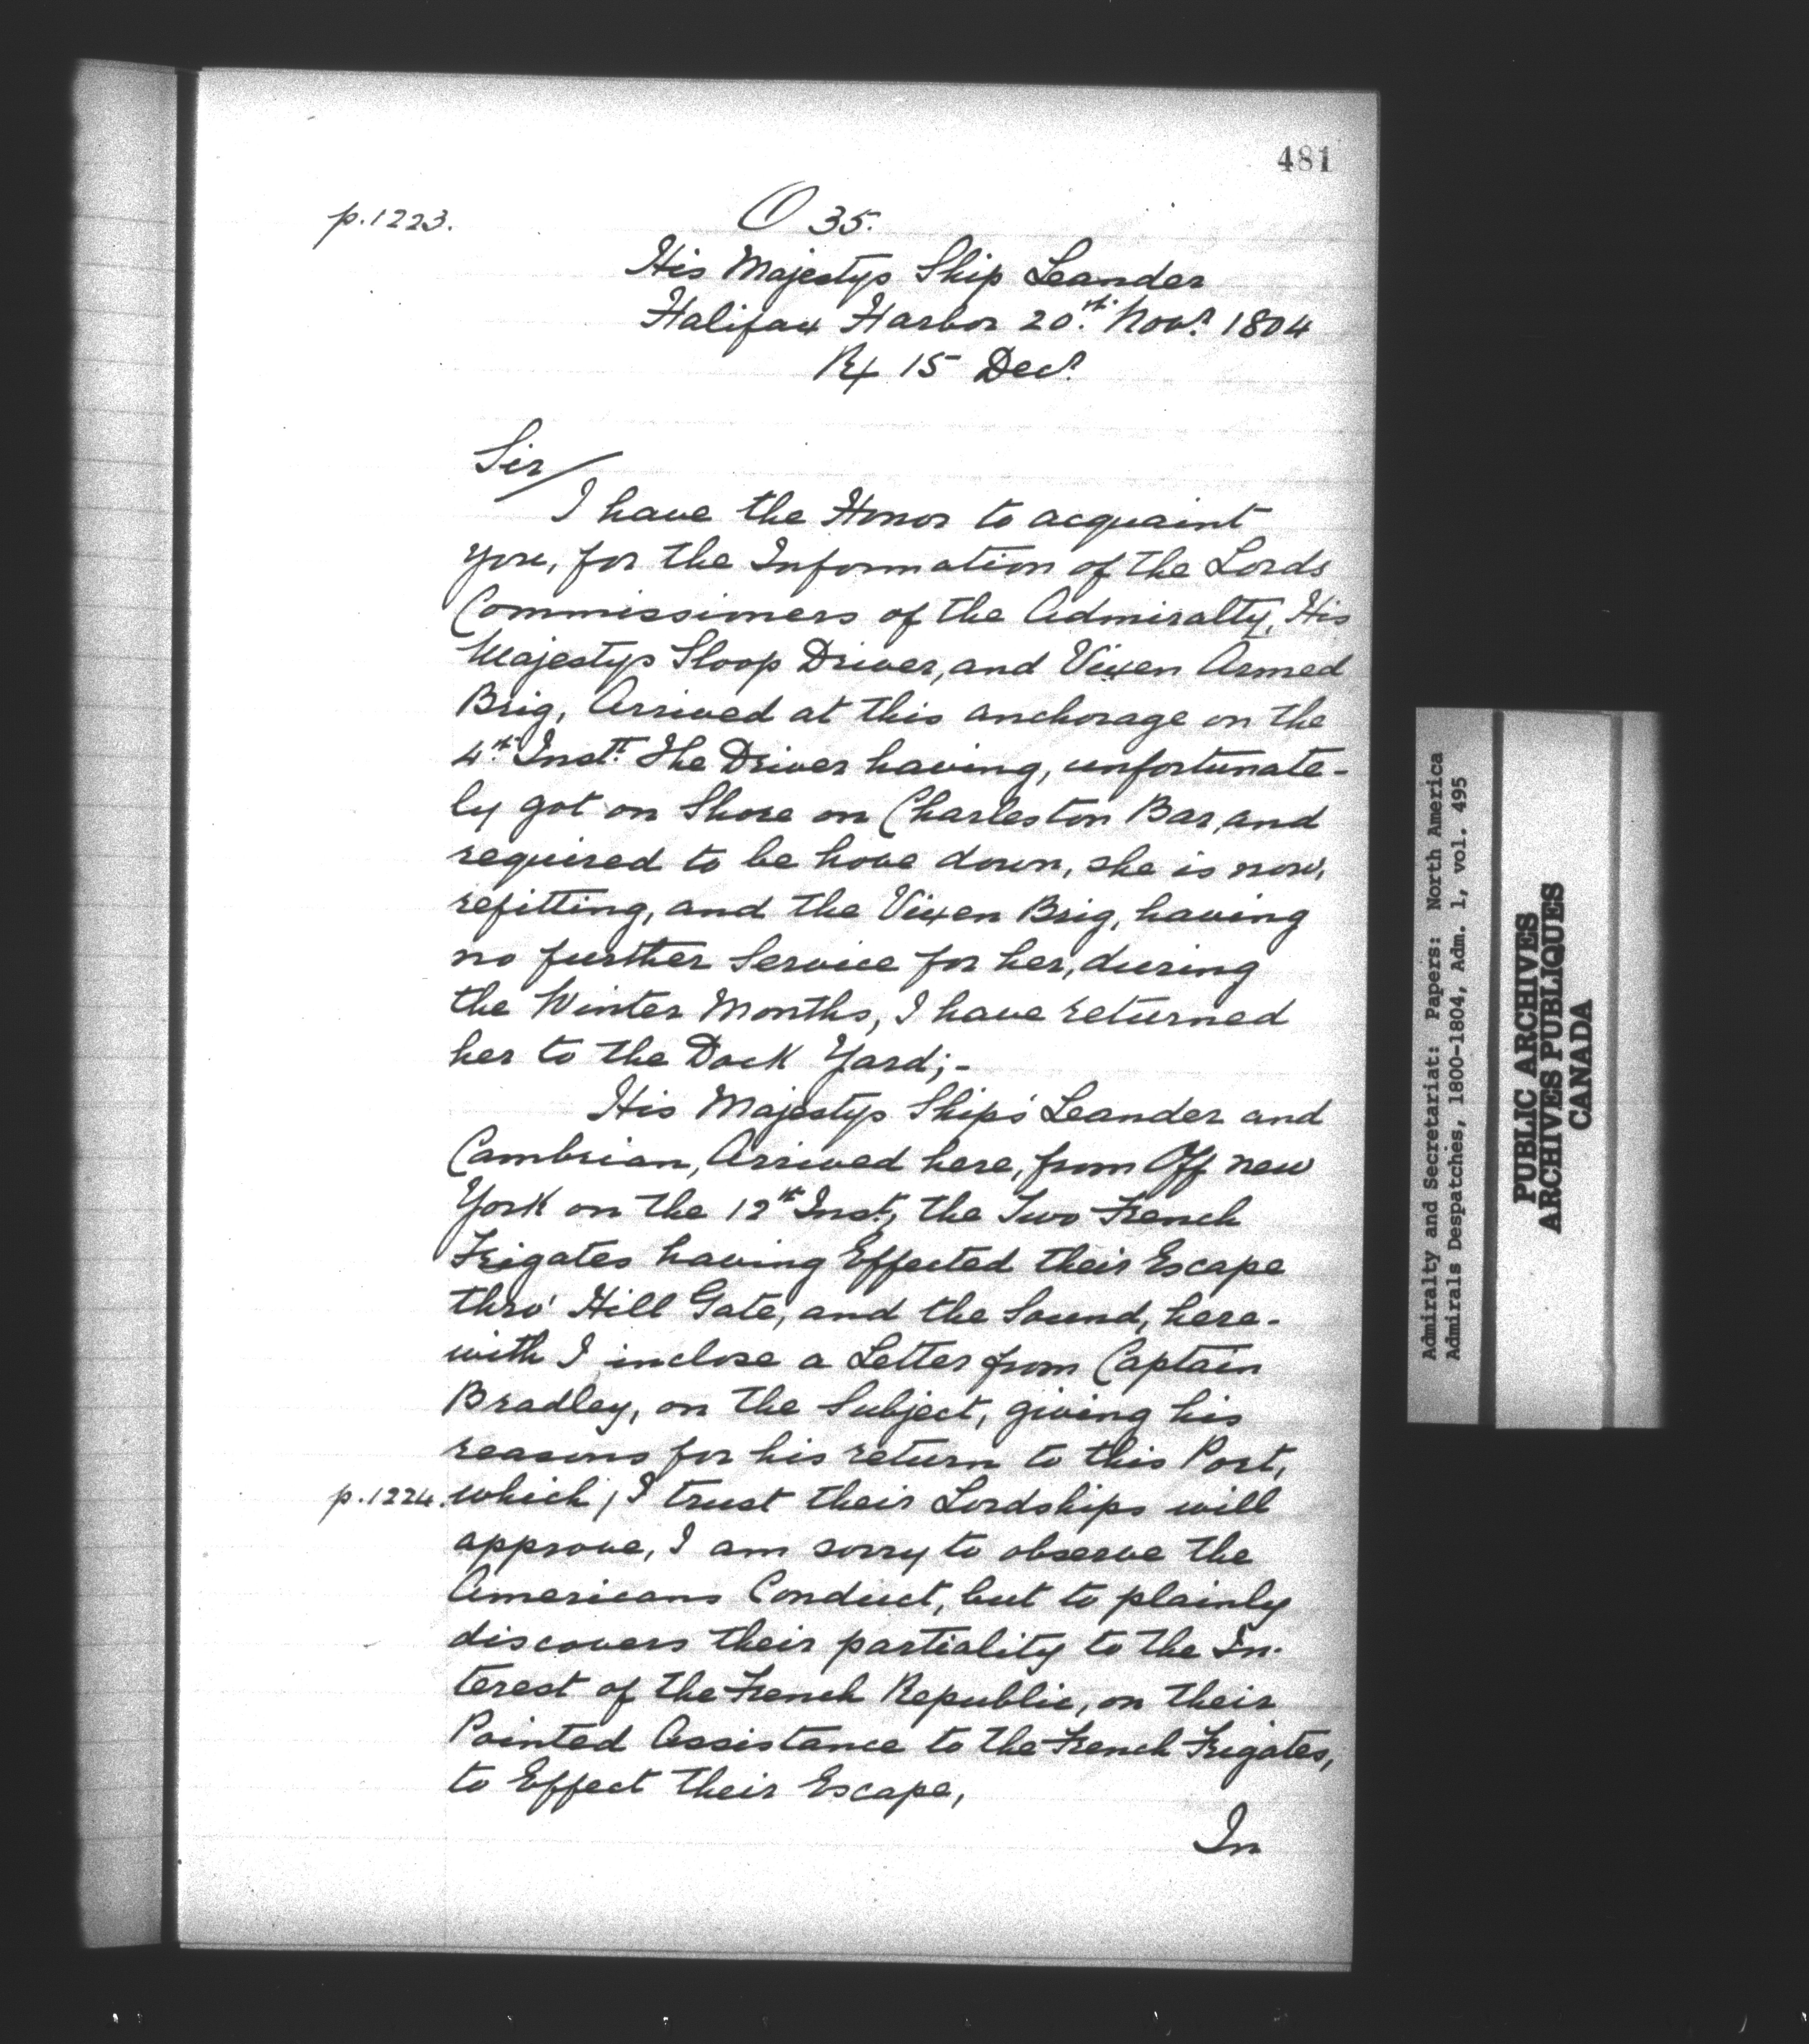 481
p.1223.
O 35.
His Majestys Ship Leander
Halifax Harbor 20th. Novr. 1804
Rx 15 Decr.
Sir/
I have the Honor to acquaint
you, for the Information of the Lords
Commissioners of the Admiralty, His
Majestys Sloop Driver, and Vixen Armed
Brig, Arrived at this anchorage on the
4th. Instt. The Driver having, unfortunate-
ly got on Shore on Charleston Bar, and
required to be hove down, she is now,
refitting, and the Vixen Brig, having
no further Service for her, during
the Winter Months, I have returned
her to the Dock Yard;-
His Majestys Ships Leander and
Cambrian, Arrived here, from Off new
York on the 12th Inst., the Two French
Frigates having Effected their Escape
thro' Hill Gate, and the Sound, here-
with I inclose a Letter from Captain
Bradley, on the Subject, giving his
reasons for his return to this Port,
p.1224. which, I trust their Lordships will
approve, I am sorry to observe the
Americans Conduct, but to plainly
discovers their partiality to the In-
terest of the French Republic, on their
Pointed Assistance to the French Frigates,
to Effect their Escape,
In
Admiralty and Secretariat: Papers: North America
Admirals Despatches, 1800-1804, Adm. 1, vol. 495
PUBLIC ARCHIVES
ARCHIVES PUBLIQUES
CANADA